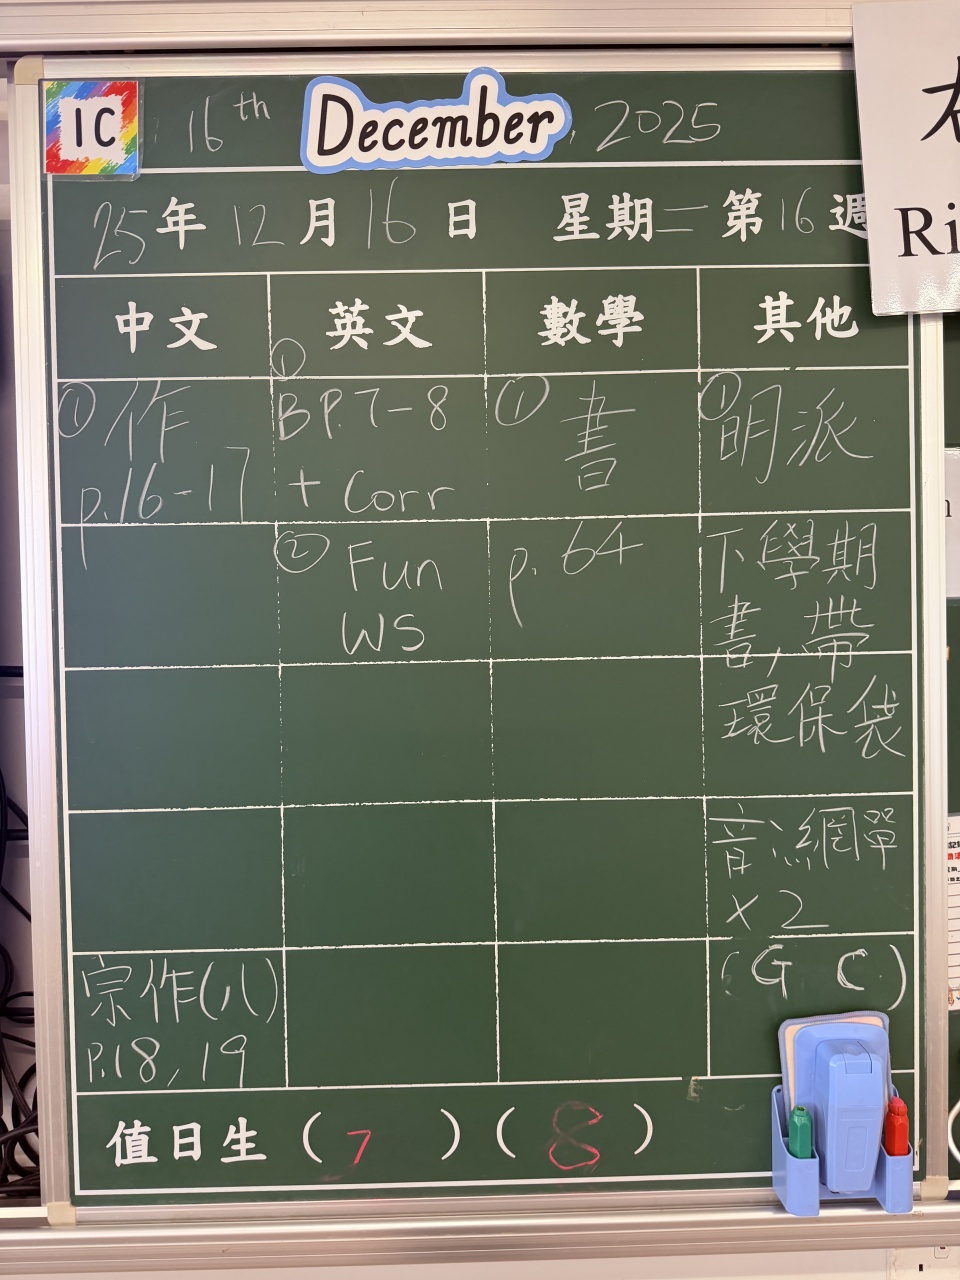 1C
16th December, 2025
25年12月16日 星期二 第16週
Ri
中文 英文 數學 其他
① 作
p.16-17
①
BP.7-8
+ Corr
② Fun
WS
① 書
p. 64
① 明派
下學期
書,帶
環保袋
音:網單
×2
(G C)
宗作(八)
P.18, 19
值日生 (7) (8)